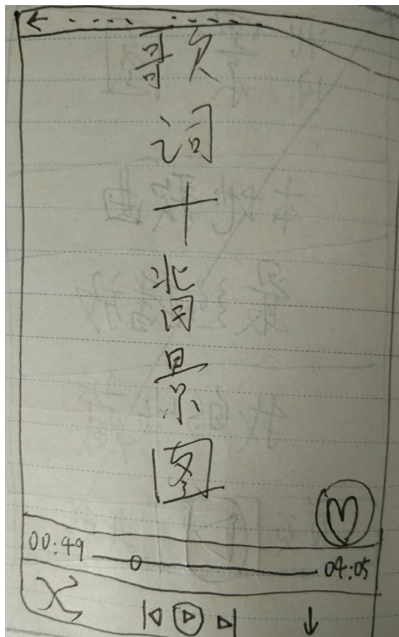 歌
词
+
背
景
图
00:49
04:05